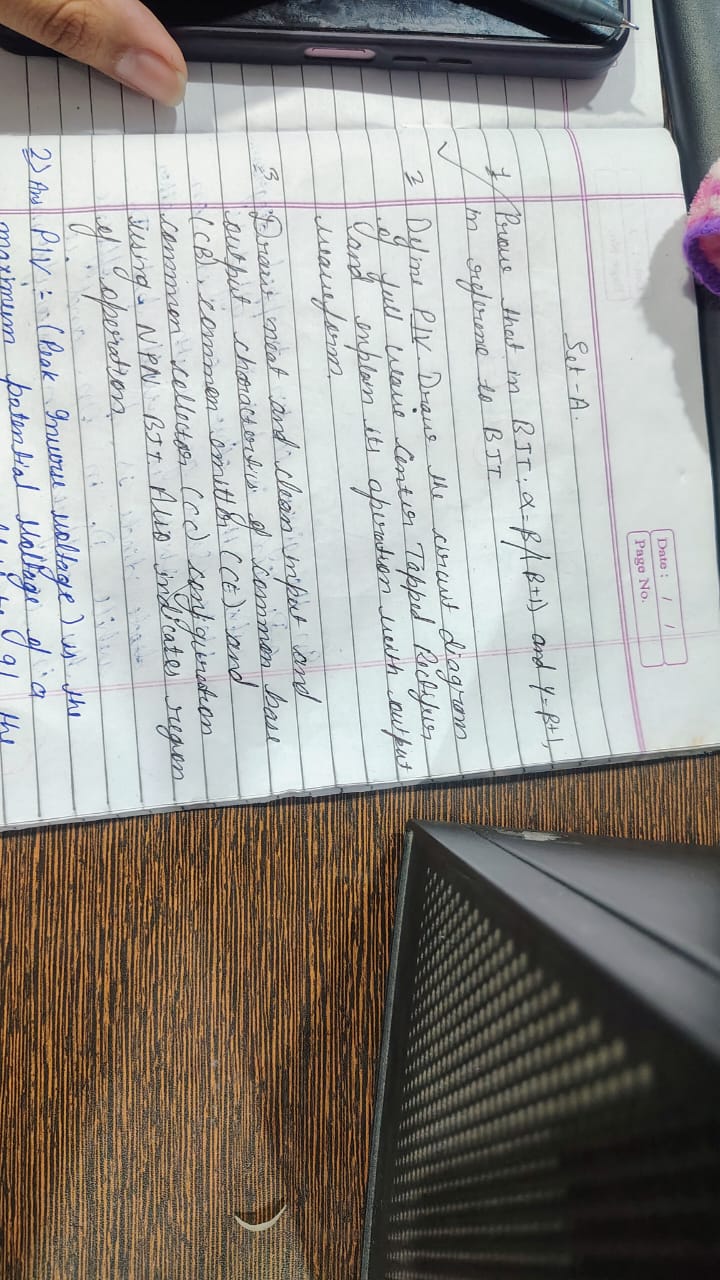 Date: / /
Page No.
Set-A.
1 Prove that in BJT: α=β/(β+1) and γ=β+1,
in reference to BJT
2 Define PIV Draw the circuit diagram
of full wave Center Tapped Rectifier
and explain its operation with output
waveform.
3 Draw neat and clean input and
output characteristics of common base
(CB), common emitter (CE) and
common collector (CC) configuration
using NPN BJT. Also indicates region
of operation.
2) Ans PIV :- (Peak Inverse voltage) is the
maximum potential voltage of a
the